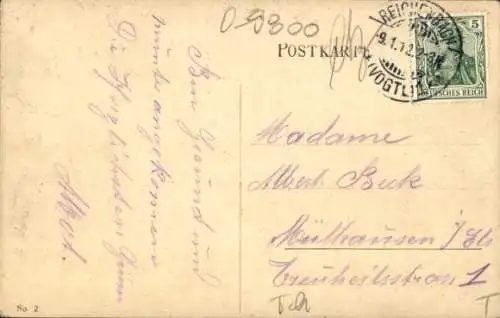 O 5300
POSTKARTE
REICHENBACH
9.1.12
(VOGTL.)
5
DEUTSCHES REICH
Bin Gesund und
munter angekommen
Die Herzlichsten Grüsse
Albert.
Madame
Albert Beck
Mülhausen / Els
Treuheitsstran 1
No 2
T